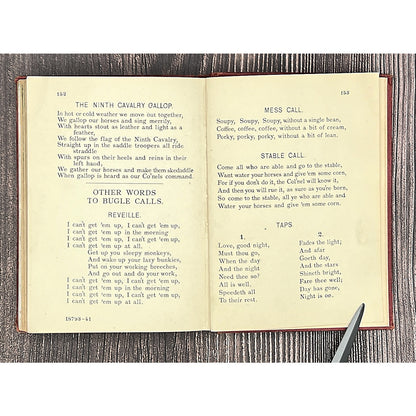 152
THE NINTH CAVALRY GALLOP.
In hot or cold weather we move out together,
We gallop our horses and sing merrily,
With hearts stout as leather and light as a
feather,
We follow the flag of the Ninth Cavalry,
Straight up in the saddle troopers all ride
straddle
With spurs on their heels and reins in their
left hand,
We gather our horses and make them skedaddle
When gallop is heard as our Co'nels command.
OTHER WORDS
TO BUGLE CALLS.
REVEILLE.
I can't get 'em up, I can't get 'em up,
I can't get 'em up in the morning
I can't get 'em up, I can't get 'em up,
I can't get 'em up at all.
Get up you sleepy monkeys,
And wake up your lazy bunkies,
Put on your working breeches,
And go out and do your work,
I can't get 'em up, I can't get 'em up,
I can't get 'em up in the morning
I can't get 'em up, I can't get 'em up,
I can't get 'em up at all.
18793-41
153
MESS CALL.
Soupy, Soupy, Soupy, without a single bean,
Coffee, coffee, coffee, without a bit of cream,
Porky, porky, porky, without a bit of lean.
STABLE CALL.
Come all who are able and go to the stable,
Want your horses water and give 'em some corn,
For if you don't do it, the Col'nel will know it
And then you will rue it, as sure as you're born,
So come to the stable, all ye who are able and
Water your horses and give 'em some corn.
TAPS.
1.
Love, good night,
Must thou go,
When the day
And the night
Need thee so?
All is well.
Speedeth all
To their rest.
2.
Fades the light;
And afar
Goeth day,
And the stars
Shineth bright,
Fare thee well;
Day has gone,
Night is on.